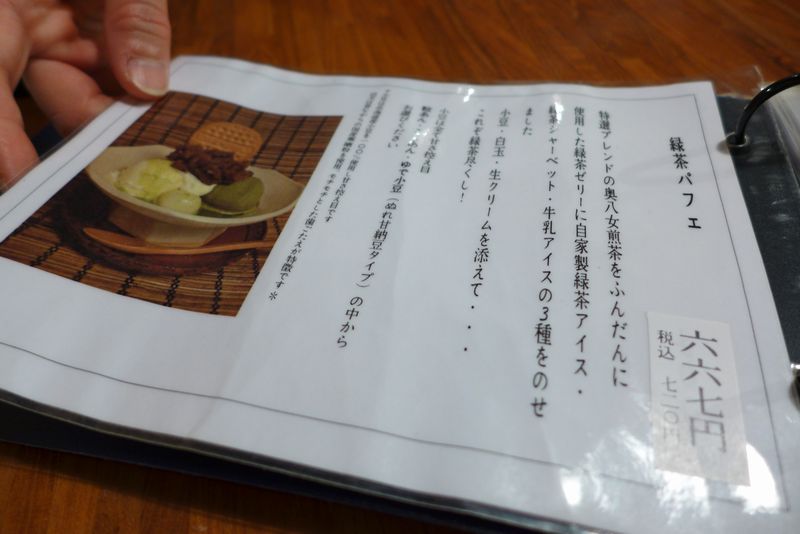 緑茶パフェ
六六七円
税込 七二〇円
特選ブレンドの奥八女煎茶をふんだんに
使用した緑茶ゼリーに自家製緑茶アイス・
緑茶シャーベット・牛乳アイスの3種をのせ
ました
小豆・白玉・生クリームを添えて・・・
これぞ緑茶尽くし！
小豆は全て甘さ控え目
粒あん・こしあん・ゆで小豆（ぬれ甘納豆タイプ）の中から
お選びください
使用 モチモチとした歯ごたえが特徴です※